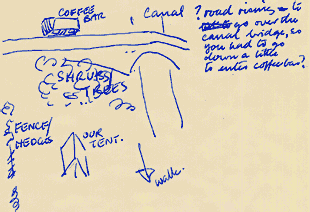 COFFEE
BAR
Canal
? road rising – to
go over the
canal bridge, so
you had to go
down a little
to enter coffee bar?
SHRUBS/
TREES
FENCE/
HEDGES
OUR
TENT.
walk.